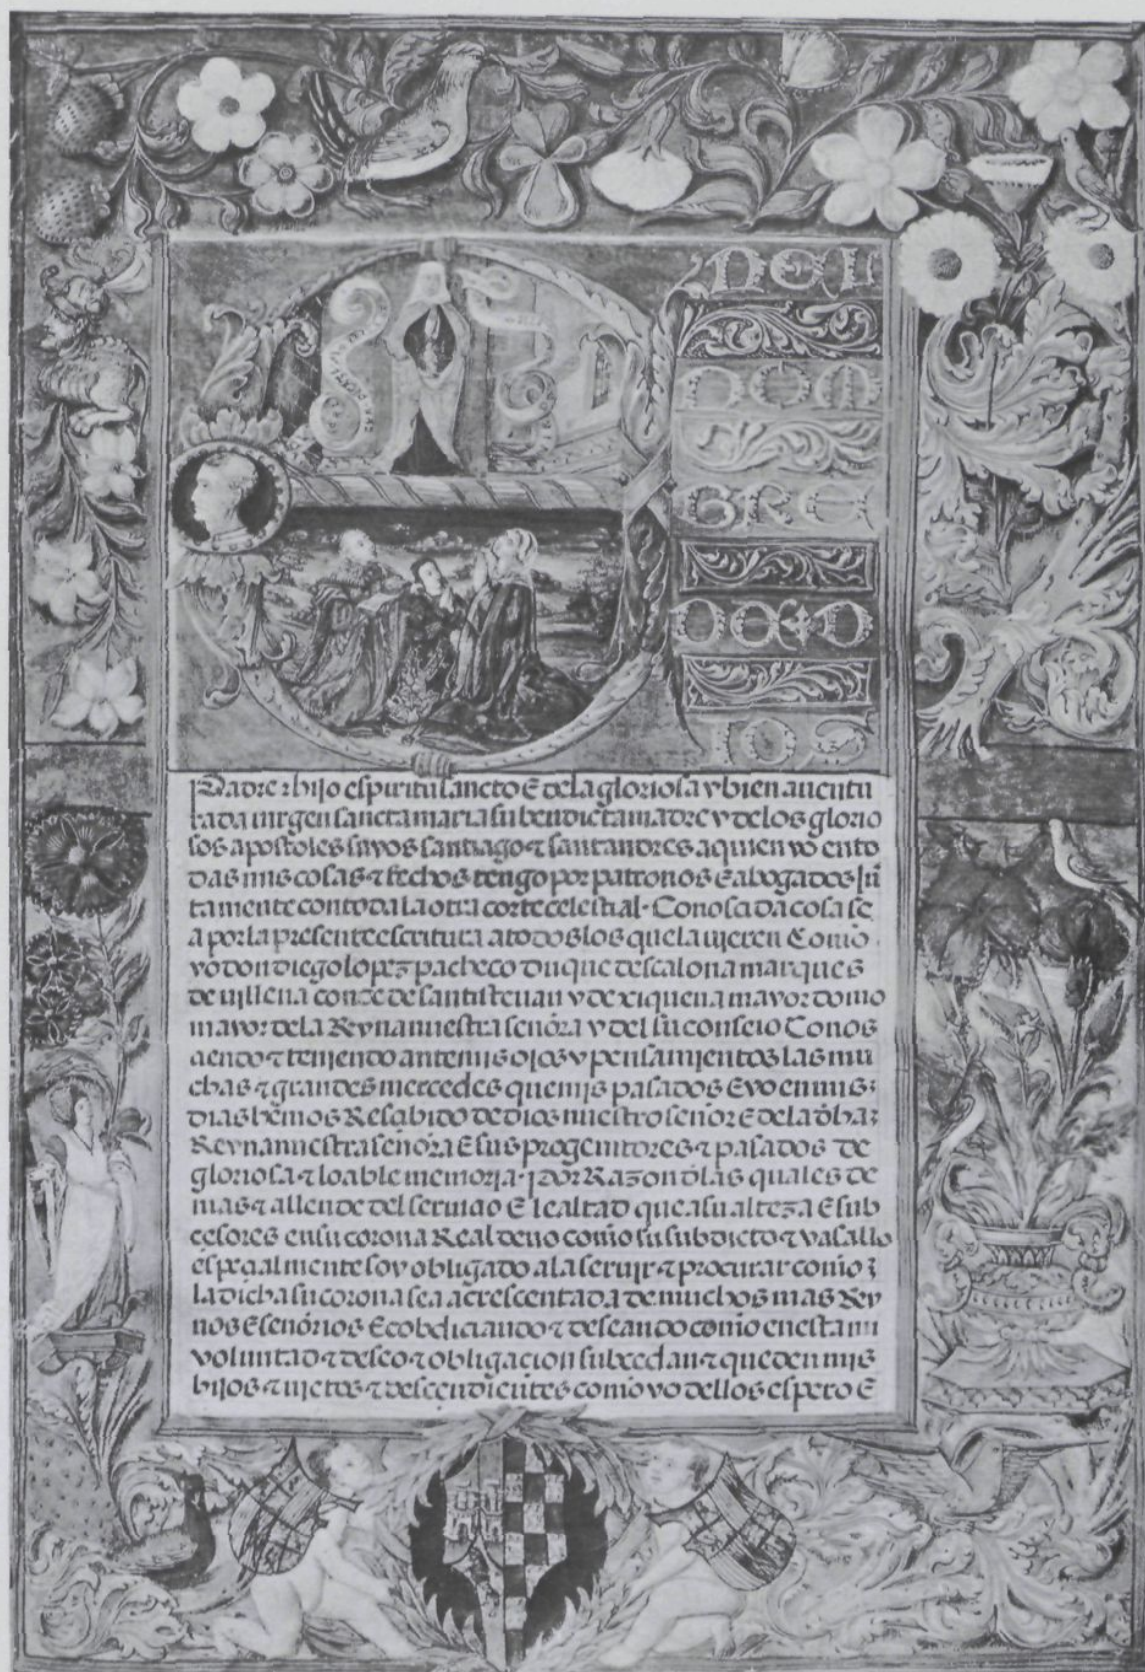 E
N EL
NOM
BRE
DE D
IOS
Padre ⁊ hijo espiritu sancto E dela gloriosa y bien auentu
rada uirgen sancta maria su bendicta madre y delos glorio
sos apostoles suyos santiago ⁊ santandres aquien yo ento
das mis cosas ⁊ fechos tengo por patronos E abogados Jũ
tamente con toda la otra corte celestial · Conosçida cosa se
a por la presente escritura atodos los que la uieren Como
yo don diego lopez pacheco duque descalona marques
de uillena conde de santisteuan y de xiquena mayordomo
mayor dela Reyna nuestra señora y del su conseio Conos
çiendo ⁊ teniendo ante mis ojos y pensamientos las mu
chas ⁊ grandes mercedes que mis pasados E yo en mis
dias hemos Resçibido de dios nuestro señor E dela dha
Reyna nuestra señora E sus progenitores ⁊ pasados de
gloriosa ⁊ loable memoria · por Razon dlas quales de
mas ⁊ allende del seruiçio E lealtad que a su alteza E sub
cesores en su corona Real deuo como su subdicto ⁊ vasallo
espeçialmente soy obligado a la seruir ⁊ procurar como
la dicha su corona sea acrescentada de muchos mas Rey
nos E señorios E cobdiciando ⁊ deseando como en esta mi
voluntad ⁊ deseo ⁊ obligaçion subcedan ⁊ queden mis
hijos ⁊ nietos ⁊ desçendientes como yo dellos espero E